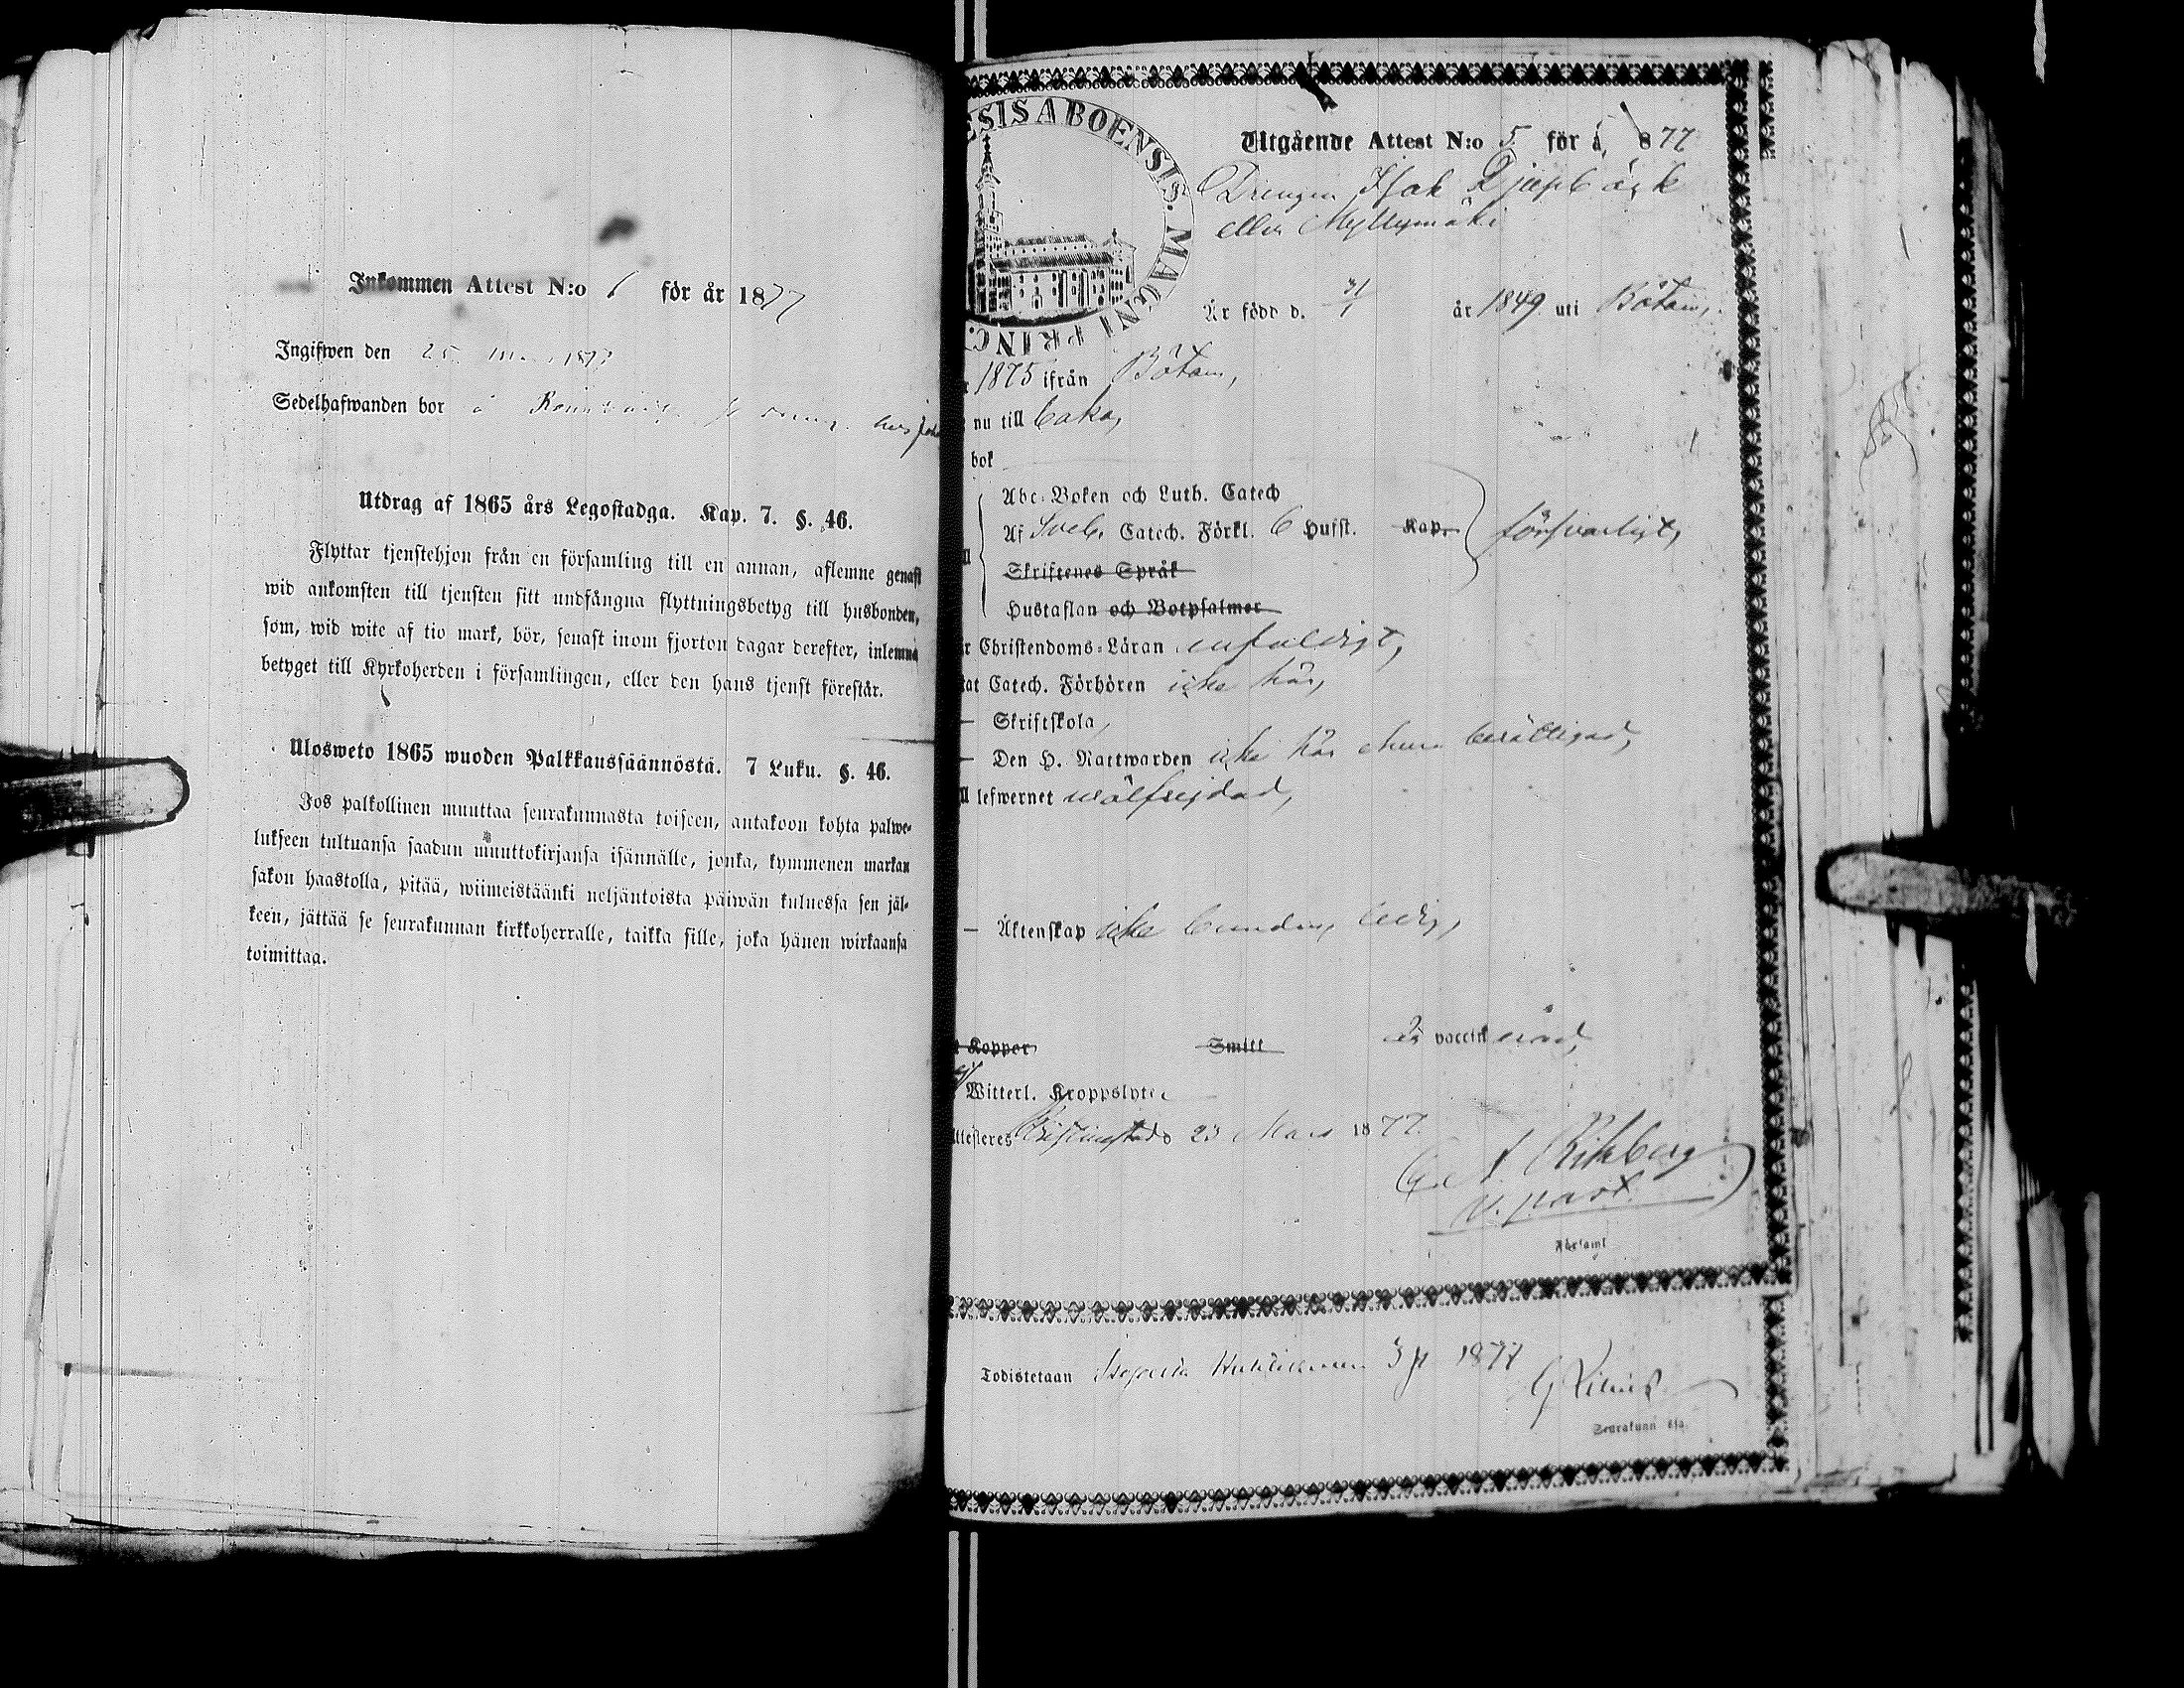 Inkommen Attest N:o 6 för år 1877
Ingifwen den 25 1877
Sedelhafwanden bor å
Utdrag af 1865 års Legostadga. Kap. 7. §. 46.
Flyttar tjenstehjon från en församling till en annan, aflemne genast
wid ankomsten till tjensten sitt undfångna flyttningsbetyg till husbonden,
som, wid wite af tio mark, bör, senast inom fjorton dagar derefter, inlemna
betyget till Kyrkoherden i församlingen, eller den hans tjenst förestår.
Ulosweto 1865 wuoden Palkkaussäännöstä. 7 Luku. §. 46.
Jos palkollinen muuttaa seurakunnasta toiseen, antakoon kohta palwe-
lukseen tultuansa saadun muuttokirjansa isännälle, jonka, kymmenen markan
sakon haastolla, pitää, wiimeistäänki neljäntoista päiwän kuluessa sen jäl-
keen, jättää se seurakunnan kirkkoherralle, taikka sille, joka hänen wirkaansa
toimittaa.
ESIS ABOENSIS. MAGNI PRINC.
Utgående Attest N:o 5 för å 877
Drengen Isak Djupbäck
eller Myllymäki
Är född d. 31/1 år 1849 uti Bötom,
1875 ifrån Bötom,
nu till baka,
bok
Abc-Boken och Luth. Catech
Af Sveb. Catech. Förkl. 6 Hufst. Kap. försvarligt,
Skriftenes Språk
Hustaflan och Botpsalmer
r Christendoms-Läran enfaldigt,
kat Catech. Förhören icke här,
— Skriftskola,
— Den H. Nattwarden icke här ehuru berättigad,
ll lefwernet wälfrejdad,
— Äktenskap icke bunden, ledig,
Koppor Smitt är vaccinerad,
Witterl. Kroppslyte
Attesteras Kristinestad d 23 Mars 1877.
A Rihberg
v. past.
Församl
Todistetaan 1877
Seurakunn